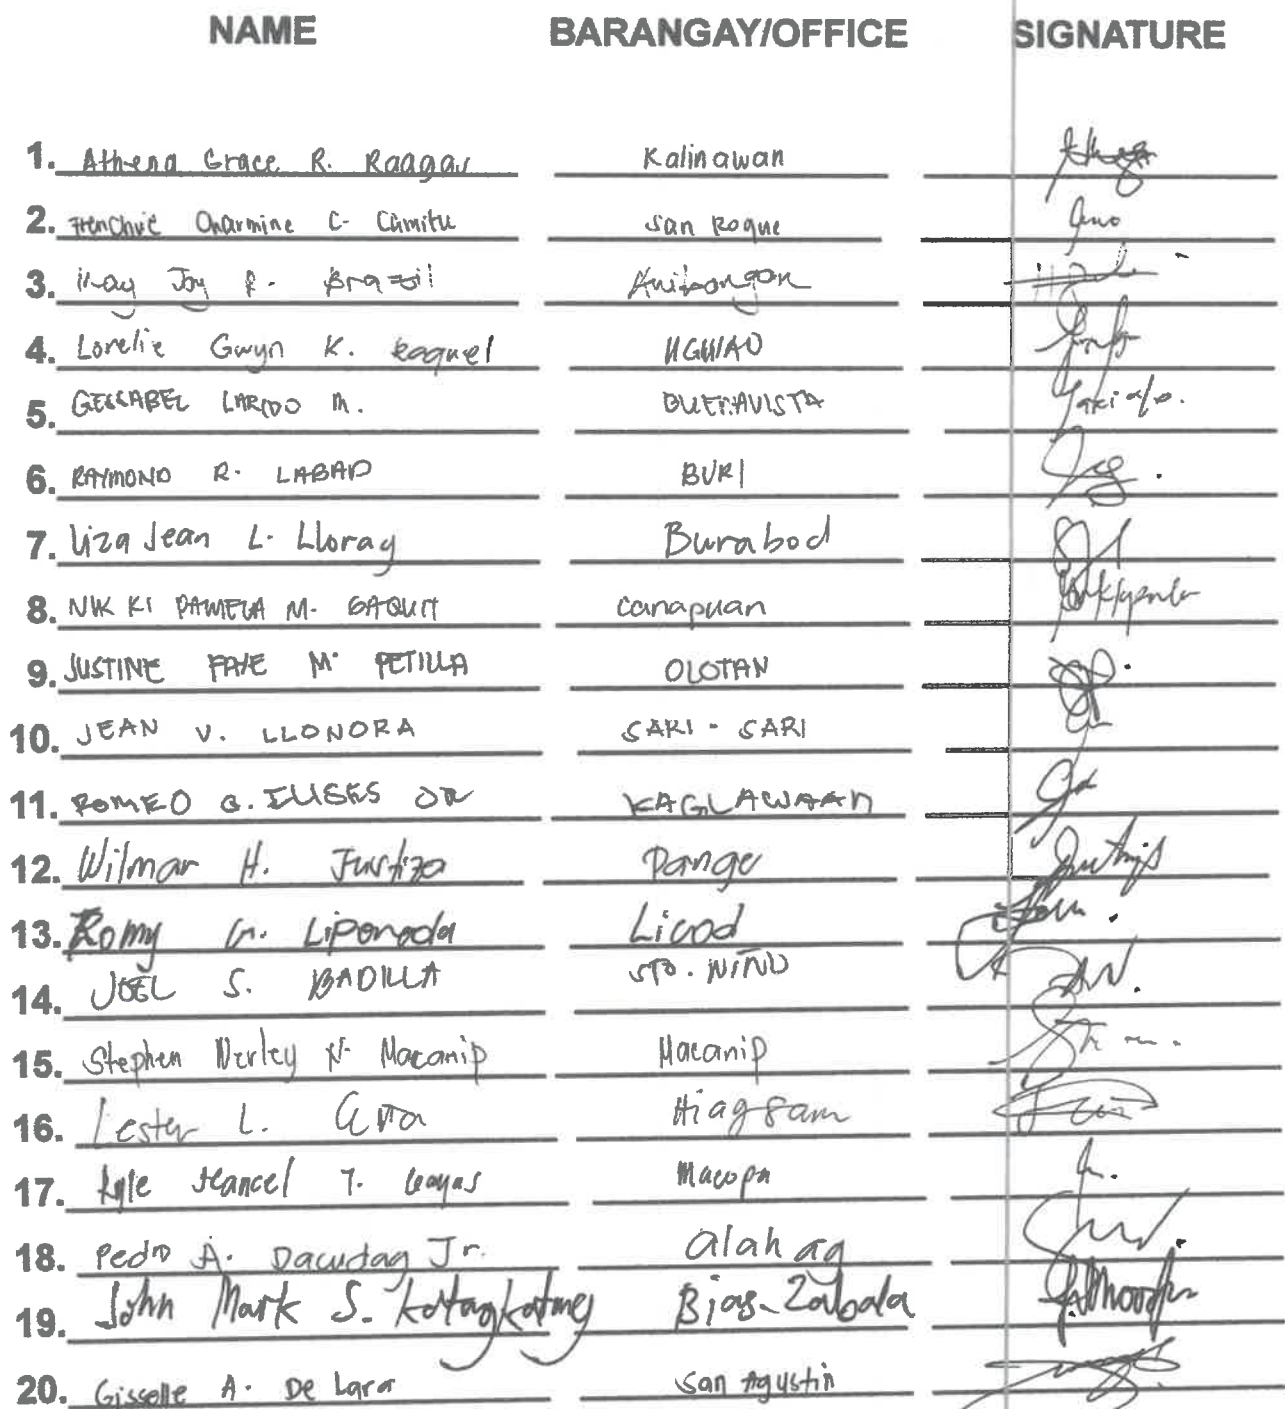 NAME BARANGAY/OFFICE SIGNATURE
1. Athena Grace R. Raagas Kalinawan
2. Frenchie Charmine C. San Roque
3. Kay Joy P. Brazil Anibongon
4. Lorelie Gwyn K. Raquel UGUIAO
5. GESCABEL M. BUENAVISTA
6. RAYMOND R. LABAD BURI
7. Liza Jean L. Lloray Burabod
8. NIKKI PAMELA M. GAQUIT Canapuan
9. JUSTINE FAYE M. PETILLA OLOTAN
10. JEAN V. LLONORA SARI-SARI
11. ROMEO G. JR KAGLAWAAN
12. Wilmar H. Justiza Pange
13. Romy G. Liponada Licod
14. JOEL S. BADILLA STO. NIÑO
15. Stephen N. Macanip Macanip
16. Lester L. Hiagsam
17. Kyle T. Macopa
18. Pedro A. Dacudag Jr. Alahag
19. John Mark S. Katangkatang Bias-Zabala
20. Gisselle A. De Lara San Agustin